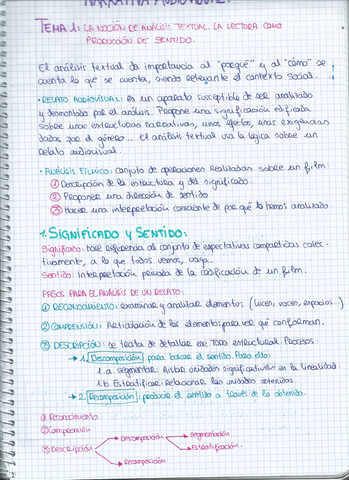 NARRATIVA AUDIOVISUAL
TEMA 1: LA NOCIÓN DE ANÁLISIS TEXTUAL. LA LECTURA COMO
PRODUCCIÓN DE SENTIDO.
El análisis textual da importancia al "porqué" y al "cómo" se
cuenta lo que se cuenta, siendo relevante el contexto social.
• RELATO AUDIOVISUAL: es un aparato susceptible de ser analizado
y desmontado por el análisis. Propone una significación edificada
sobre unas estructuras narrativas, unos efectos, unas exigencias
dadas por el género... El análisis textual usa la lógica sobre un
relato audiovisual.
• ANÁLISIS FÍLMICO: conjunto de operaciones realizadas sobre un film:
① Descripción de la estructura y del significado.
② Proponer una dirección de sentido
③ Hacer una interpretación consciente de por qué lo hemos analizado
1. SIGNIFICADO Y SENTIDO:
Significado: hace referencia al conjunto de expectativas compartidas colec-
tivamente, a lo que todos vemos,
Sentido: Interpretación privada de la codificación de un film.
PASOS PARA EL ANÁLISIS DE UN RELATO:
① RECONOCIMIENTO: examinar y analizar elementos (luces, voces, espacios...)
② COMPRENSIÓN: Articulación de los elementos para ver qué conforman.
③ DESCRIPCIÓN: se trata de detallar ese todo estructural. Procesos:
→ 1. Descomposición para buscar el sentido. Para ello:
1.a. segmentar: Aislar unidades significativas en la linealidad.
1.b. Estratificar: Relacionar las unidades obtenidas.
→ 2. Recomposición: producir el sentido a través de lo obtenido.
① Reconocimiento
② Comprensión
③ Descripción
Descomposición
Segmentación
Estratificación.
Recomposición